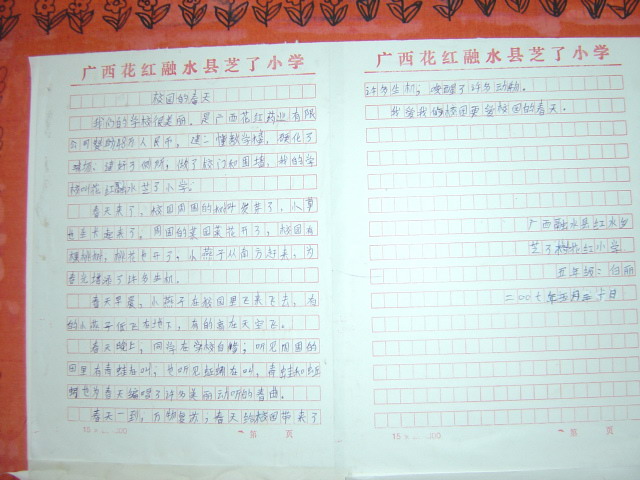 广西花红融水县芝了小学
校园的春天
我们的学校很美丽。是广西花红药业有限
公司帮助48万人民币，建一幢教学楼，硬化了
球场，建好了厕所，做了校门和围墙，我的学
校叫花红融水芝了小学。
春天来了，校园周围的树木发芽了，小草
也三长起来了。周围的菜园菜花开了，校园有
棵桃树，桃花也开了，小燕子从南方归来，为
春光增添了许多生机。
春天早晨，小燕子在校园里飞来飞去，有
的小燕子低飞在地下，有的高在天空飞。
春天晚上，同学在学校自
听见周围的
田里有青蛙在叫，也听见
在叫，青蛙和
也为春天编唱了许多美丽动听的音曲。
春天一到，万物复苏；春天给校园带来了
15×
第 页
广西花红融水县芝了小学
许多生机，唤醒了许多动物。
我爱我的校园更爱校园的春天。
广西融水县红水乡
芝了花红小学
五年级：
二〇〇七年
月二十日
15×
第 页